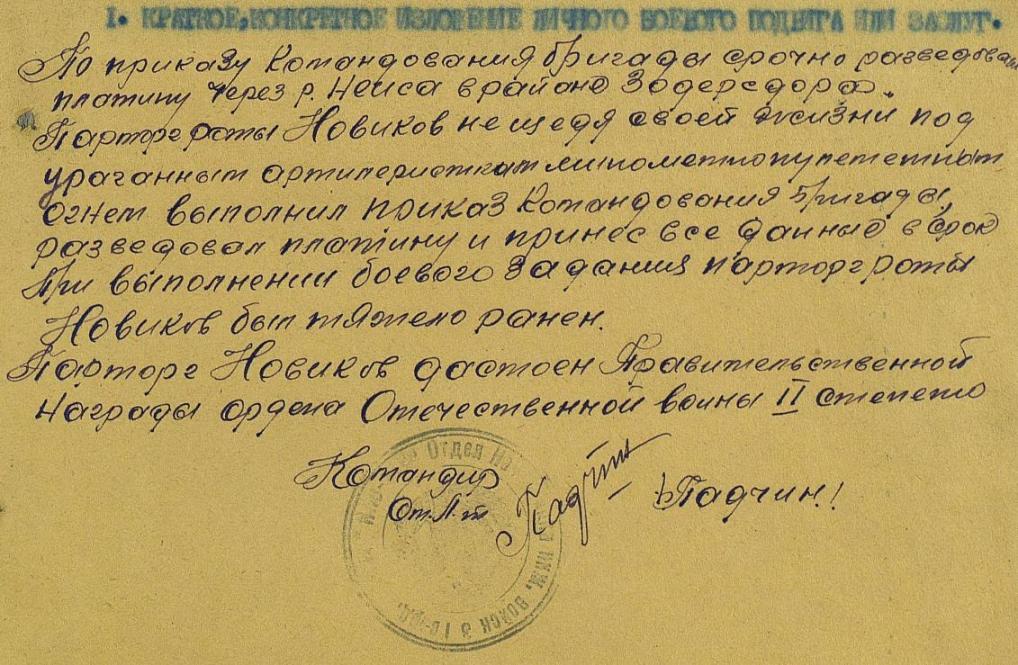 I. КРАТКОЕ, КОНКРЕТНОЕ ИЗЛОЖЕНИЕ ЛИЧНОГО БОЕВОГО ПОДВИГА ИЛИ ЗАСЛУГ.
По приказу Командования бригады срочно разведовать
платину через р. Нейса в районе Зодерсдорф.
Парторг роты Новиков не щедя своей жизни под
ураганным артилеристким минометно пулеметным
огнем выполнил приказ Командования бригады,
разведовал платину и принес все данные в срок
При выполнении боевого задания парторг роты
Новиков был тяжело ранен.
Парторг Новиков дастоен Правительственной
Награды ордена Отечественной войны II степени
Командир
Ст. Л-т
Падчин!
Отдел
инж. войск 3